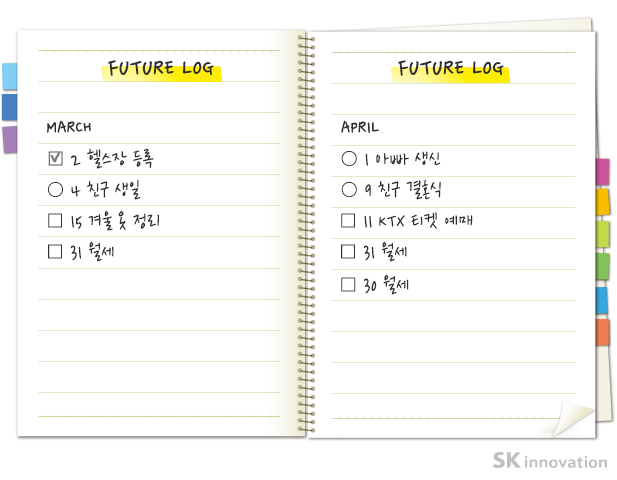 FUTURE LOG
MARCH
2 헬스장 등록
4 친구 생일
15 겨울 옷 정리
31 월세
FUTURE LOG
APRIL
1 아빠 생신
9 친구 결혼식
11 KTX 티켓 예매
31 월세
30 월세
SK innovation